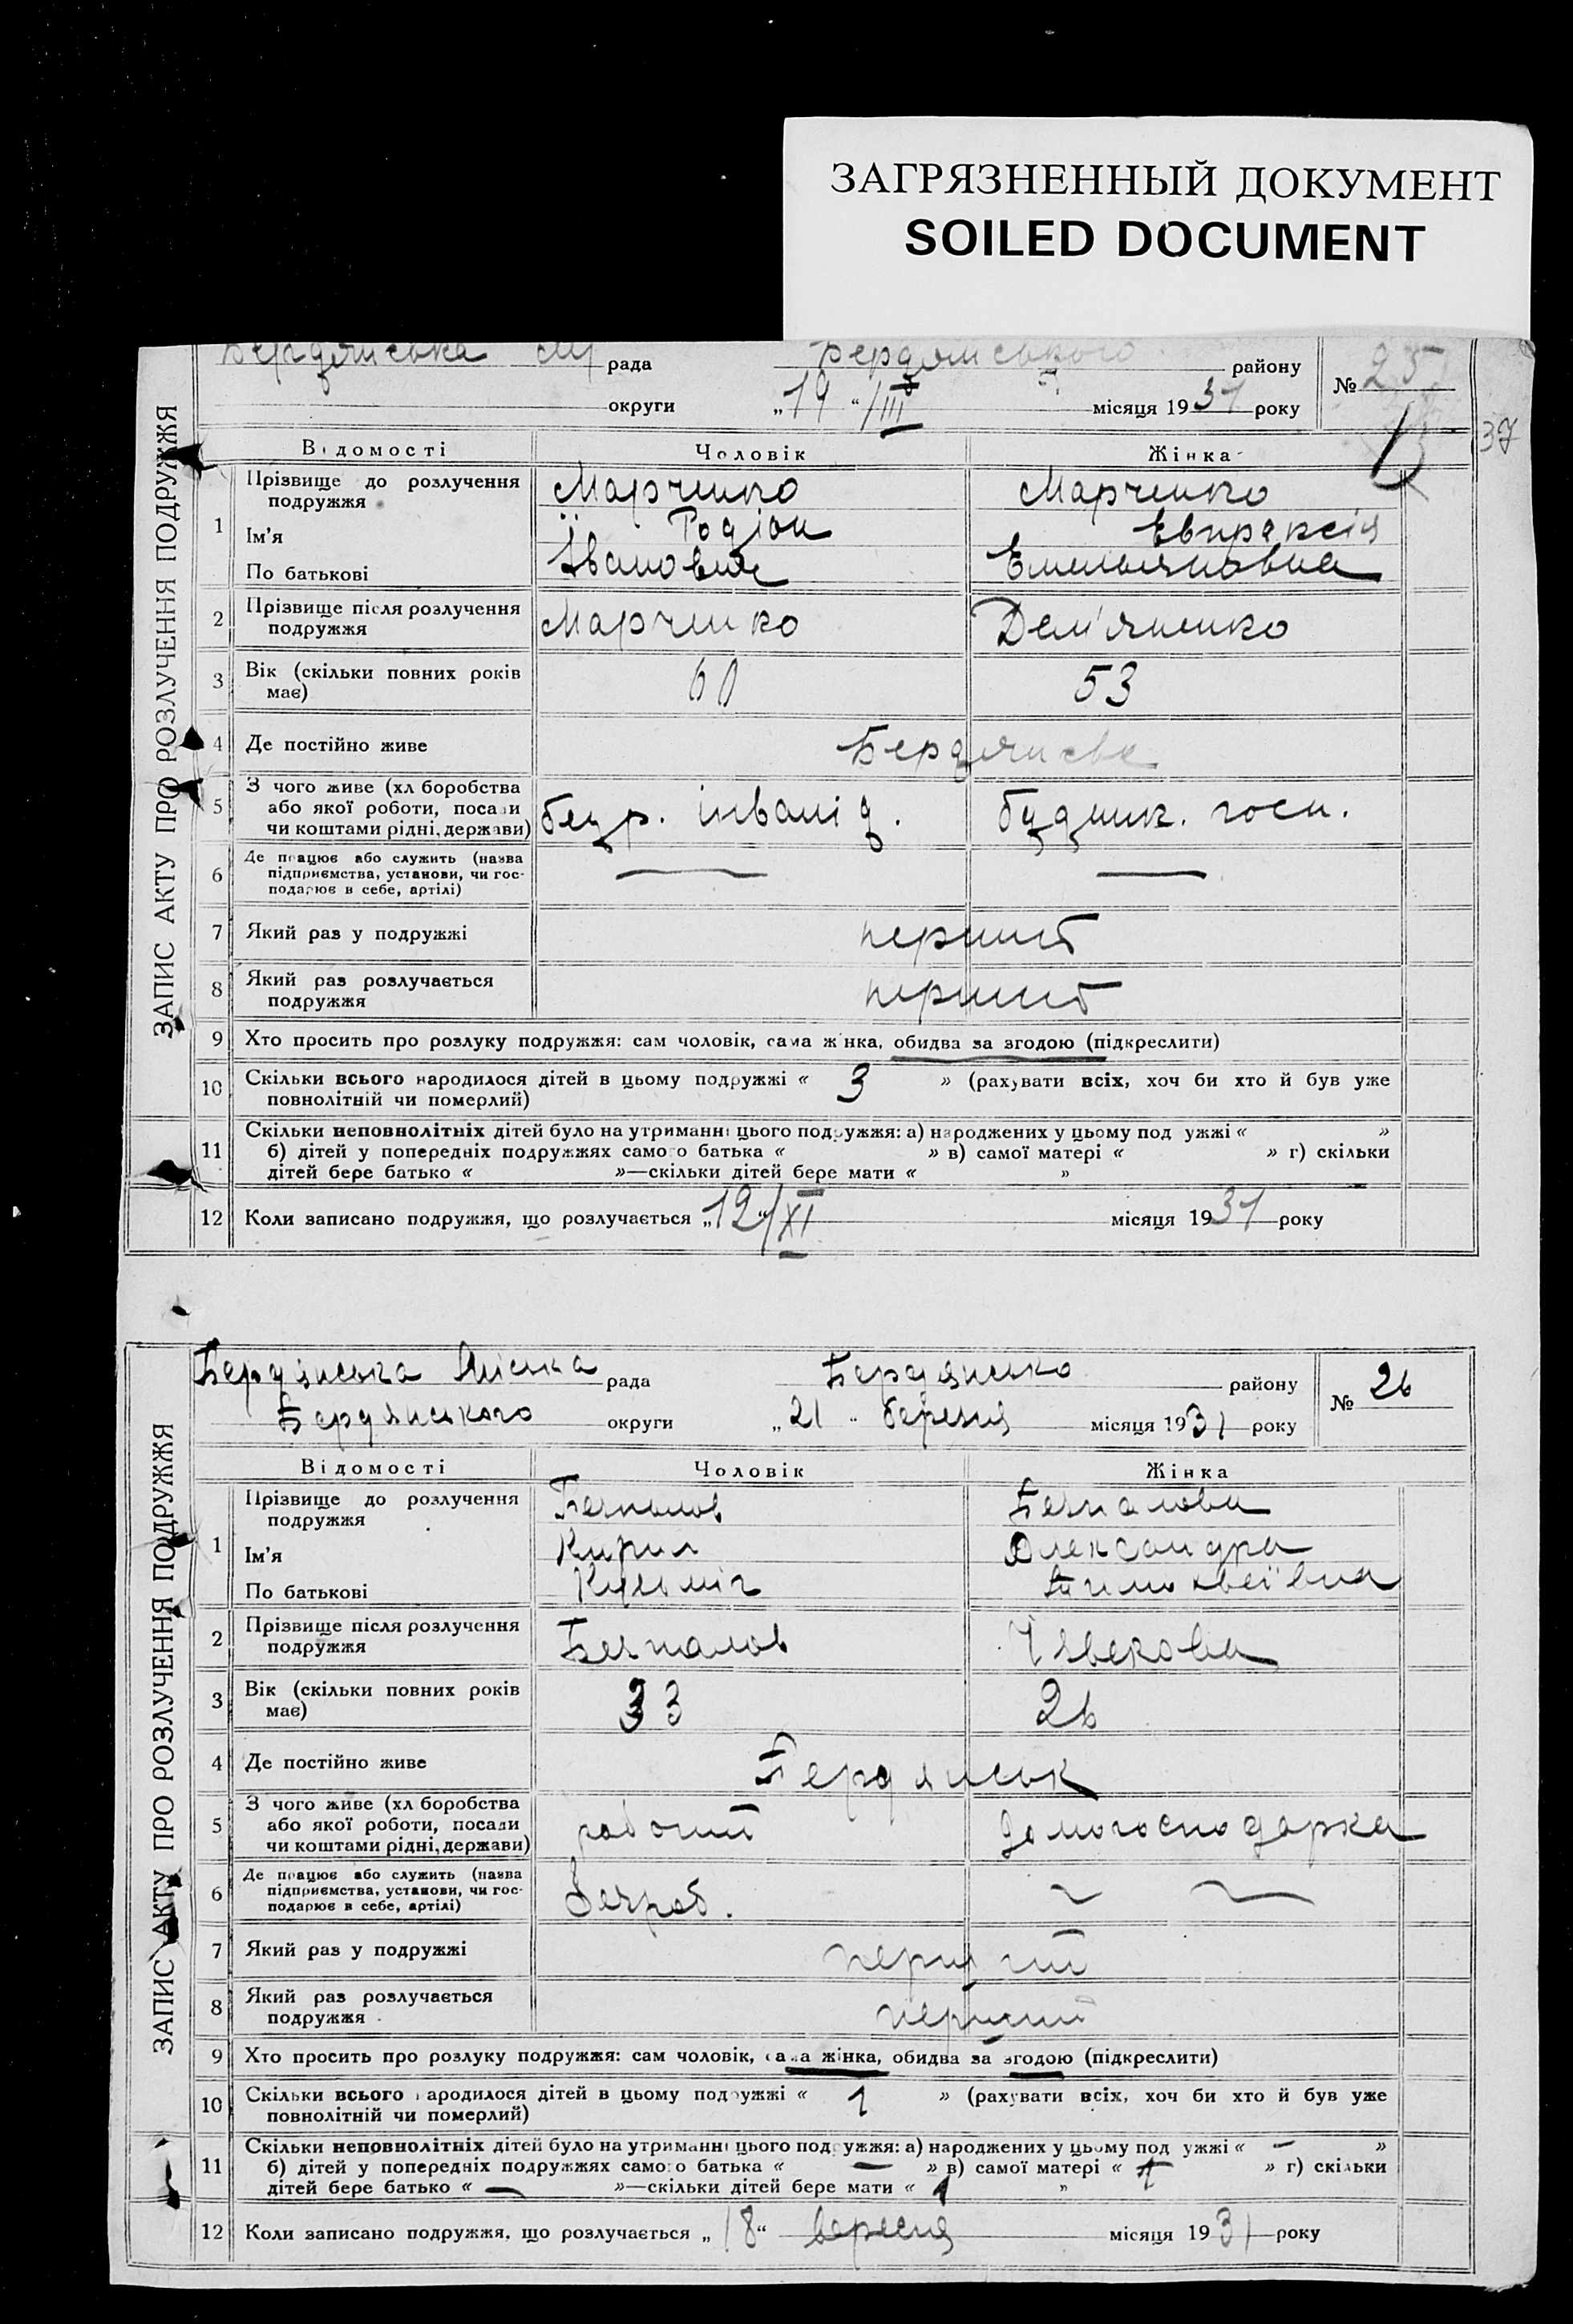 ЗАГРЯЗНЕННЫЙ ДОКУМЕНТ
SOILED DOCUMENT
ЗАПИС АКТУ ПРО РОЗЛУЧЕННЯ ПОДРУЖЖЯ
Бердянська рада Бердянського району № 25
округи „19“/III місяця 1931 року
37
Відомості Чоловік Жінка
1 Прізвище до розлучення подружжя Марченко Марченко
Ім'я Родіон Евпраксія
По батькові Іванович Емельяновна
2 Прізвище після розлучення подружжя Марченко Дем'яненко
3 Вік (скільки повних років має) 60 53
4 Де постійно живе
5 З чого живе (хліборобства або якої роботи, посади чи коштами рідні, держави) інвалід. госп.
6 Де працює або служить (назва підприємства, установи, чи господарює в себе, артілі) — —
7 Який раз у подружжі перший
8 Який раз розлучається подружжя перший
9 Хто просить про розлуку подружжя: сам чоловік, сама жінка, обидва за згодою (підкреслити)
10 Скільки всього народилося дітей в цьому подружжі « 3 » (рахувати всіх, хоч би хто й був уже
повнолітній чи померлий)
11 Скільки неповнолітніх дітей було на утриманні цього подружжя: а) народжених у цьому подружжі « »
б) дітей у попередніх подружжях самого батька « » в) самої матері « » г) скільки
дітей бере батько « »—скільки дітей бере мати « »
12 Коли записано подружжя, що розлучається „12“/XI місяця 1931 року
ЗАПИС АКТУ ПРО РОЗЛУЧЕННЯ ПОДРУЖЖЯ
Бердянська Міська рада Бердянсько району № 26
Бердянського округи „21“ березня місяця 1931 року
Відомості Чоловік Жінка
1 Прізвище до розлучення подружжя Безпалов Безпалова
Ім'я Кирил Олександра
По батькові Кузьміч Тимофеївна
2 Прізвище після розлучення подружжя Безпалов
3 Вік (скільки повних років має) 33 26
4 Де постійно живе Бердянськ
5 З чого живе (хліборобства або якої роботи, посади чи коштами рідні, держави) рабочий домогосподарка
6 Де працює або служить (назва підприємства, установи, чи господарює в себе, артілі) — —
7 Який раз у подружжі перший
8 Який раз розлучається подружжя перший
9 Хто просить про розлуку подружжя: сам чоловік, сама жінка, обидва за згодою (підкреслити)
10 Скільки всього народилося дітей в цьому подружжі « 1 » (рахувати всіх, хоч би хто й був уже
повнолітній чи померлий)
11 Скільки неповнолітніх дітей було на утриманні цього подружжя: а) народжених у цьому подружжі « — »
б) дітей у попередніх подружжях самого батька « — » в) самої матері « 1 » г) скільки
дітей бере батько « — »—скільки дітей бере мати « 1 »
12 Коли записано подружжя, що розлучається „18“ вересня місяця 1931 року